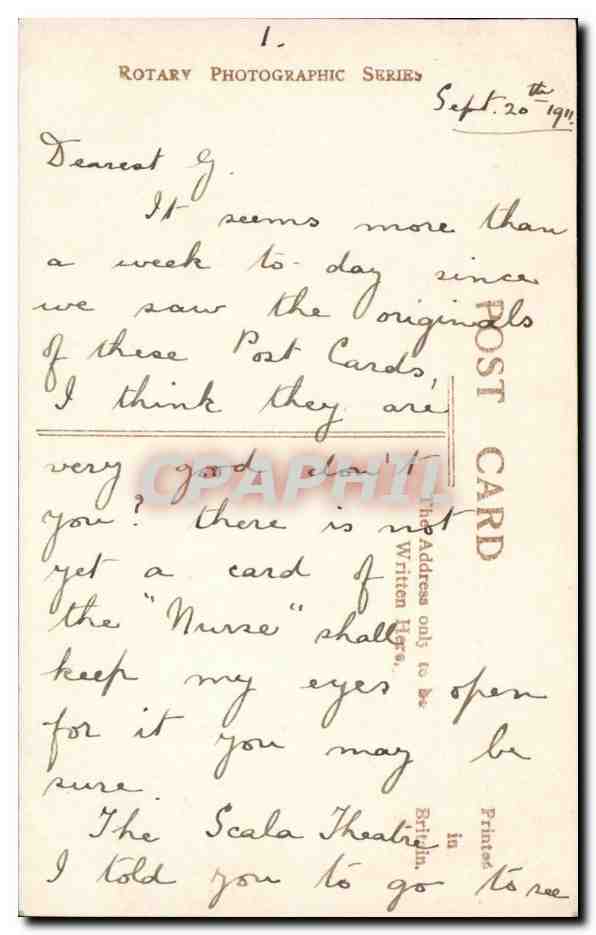 1.
ROTARY PHOTOGRAPHIC SERIES
Sept. 20th 1911.
Dearest G.
It seems more than
a week to-day since
we saw the originals
of these Post Cards,
I think they are
very good don't
you? there is not
yet a card of
the "Nurse" shall
keep my eyes open
for it you may be
sure.
The Scala Theatre
I told you to go to see
POST CARD
The Address only to be
Written Here.
Printed
in
Britain.
CPAPHIL